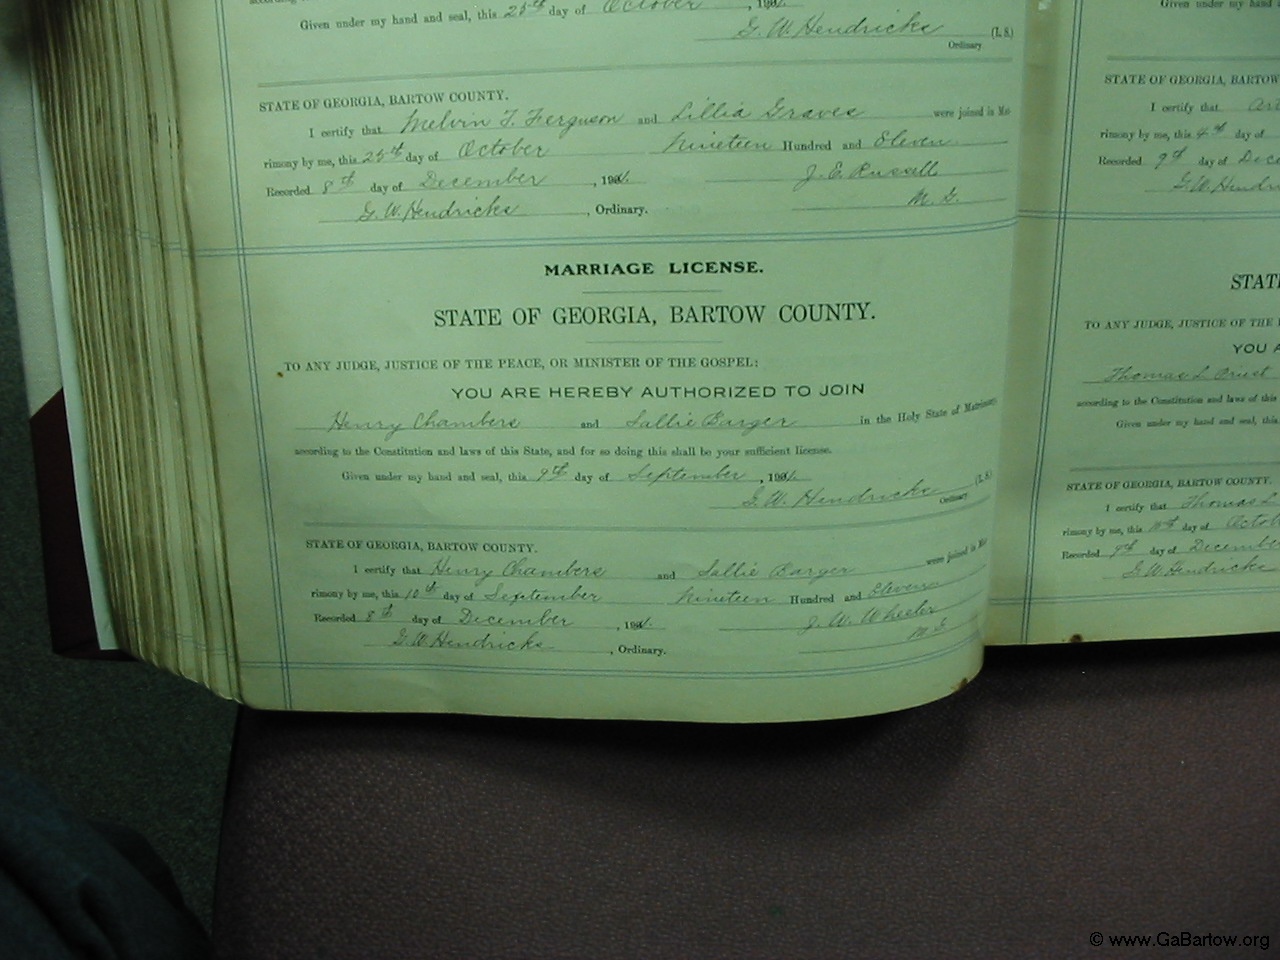 Given under my hand and seal, this 25th day of October , 1911.
G. W. Hendricks (L. S.)
Ordinary
STATE OF GEORGIA, BARTOW COUNTY.
I certify that Melvin T. Ferguson and Lillia Graves were joined in Mat-
rimony by me, this 25th day of October Nineteen Hundred and Eleven
Recorded 8th day of December , 1911. J. E. Russell
G. W. Hendricks , Ordinary. M. G.
MARRIAGE LICENSE.
STATE OF GEORGIA, BARTOW COUNTY.
TO ANY JUDGE, JUSTICE OF THE PEACE, OR MINISTER OF THE GOSPEL:
YOU ARE HEREBY AUTHORIZED TO JOIN
Henry Chambers and Sallie Barger in the Holy State of Matrimony
according to the Constitution and laws of this State, and for so doing this shall be your sufficient license.
Given under my hand and seal, this 9th day of September , 1911.
G. W. Hendricks (L. S.)
Ordinary
STATE OF GEORGIA, BARTOW COUNTY.
I certify that Henry Chambers and Sallie Barger were joined in Mat-
rimony by me, this 10th day of September Nineteen Hundred and Eleven
Recorded 8th day of December , 1911. J. W. Wheeler
G. W. Hendricks , Ordinary. M. G.
Given under my hand
STATE OF GEORGIA, BARTOW
I certify that
rimony by me, this 4th day of
Recorded 9th day of Dece
G. W. Hendri
STATE
TO ANY JUDGE, JUSTICE OF THE
YOU A
Thomas L. Priest
according to the Constitution and laws of this
Given under my hand and seal, this
STATE OF GEORGIA, BARTOW COUNTY.
I certify that Thomas L
rimony by me, this 11th day of Octob
Recorded 9th day of December
G. W. Hendricks
© www.GaBartow.org